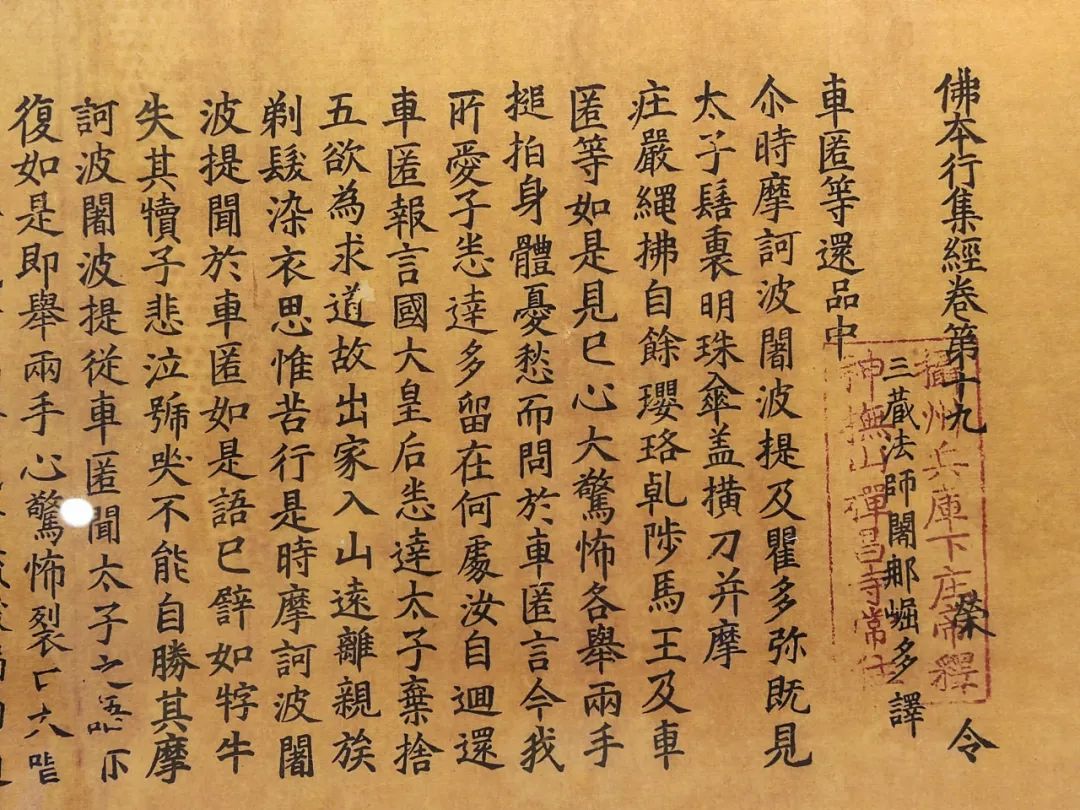 佛本行集經卷第十九 榮 令
三藏法師闍那崛多譯
車匿等還品中
尒時摩訶波闍波提及瞿多弥既見
太子髻裏明珠傘盖橫刀并摩
庄嚴繩拂自餘瓔珞乹陟馬王及車
匿等如是見已心大驚怖各舉兩手
搥拍身體憂愁而問於車匿言今我
所愛子悉達多留在何處汝自迴還
車匿報言國大皇后悉達太子棄捨
五欲為求道故出家入山遠離親族
剃髮染衣思惟苦行是時摩訶波闍
波提聞於車匿如是語已譬如牸牛
失其犢子悲泣號哭不能自勝其摩
訶波闍波提從車匿聞太子之
復如是即舉兩手心驚怖裂
攝州兵庫下庄帝釋
神撫山禪昌寺常住